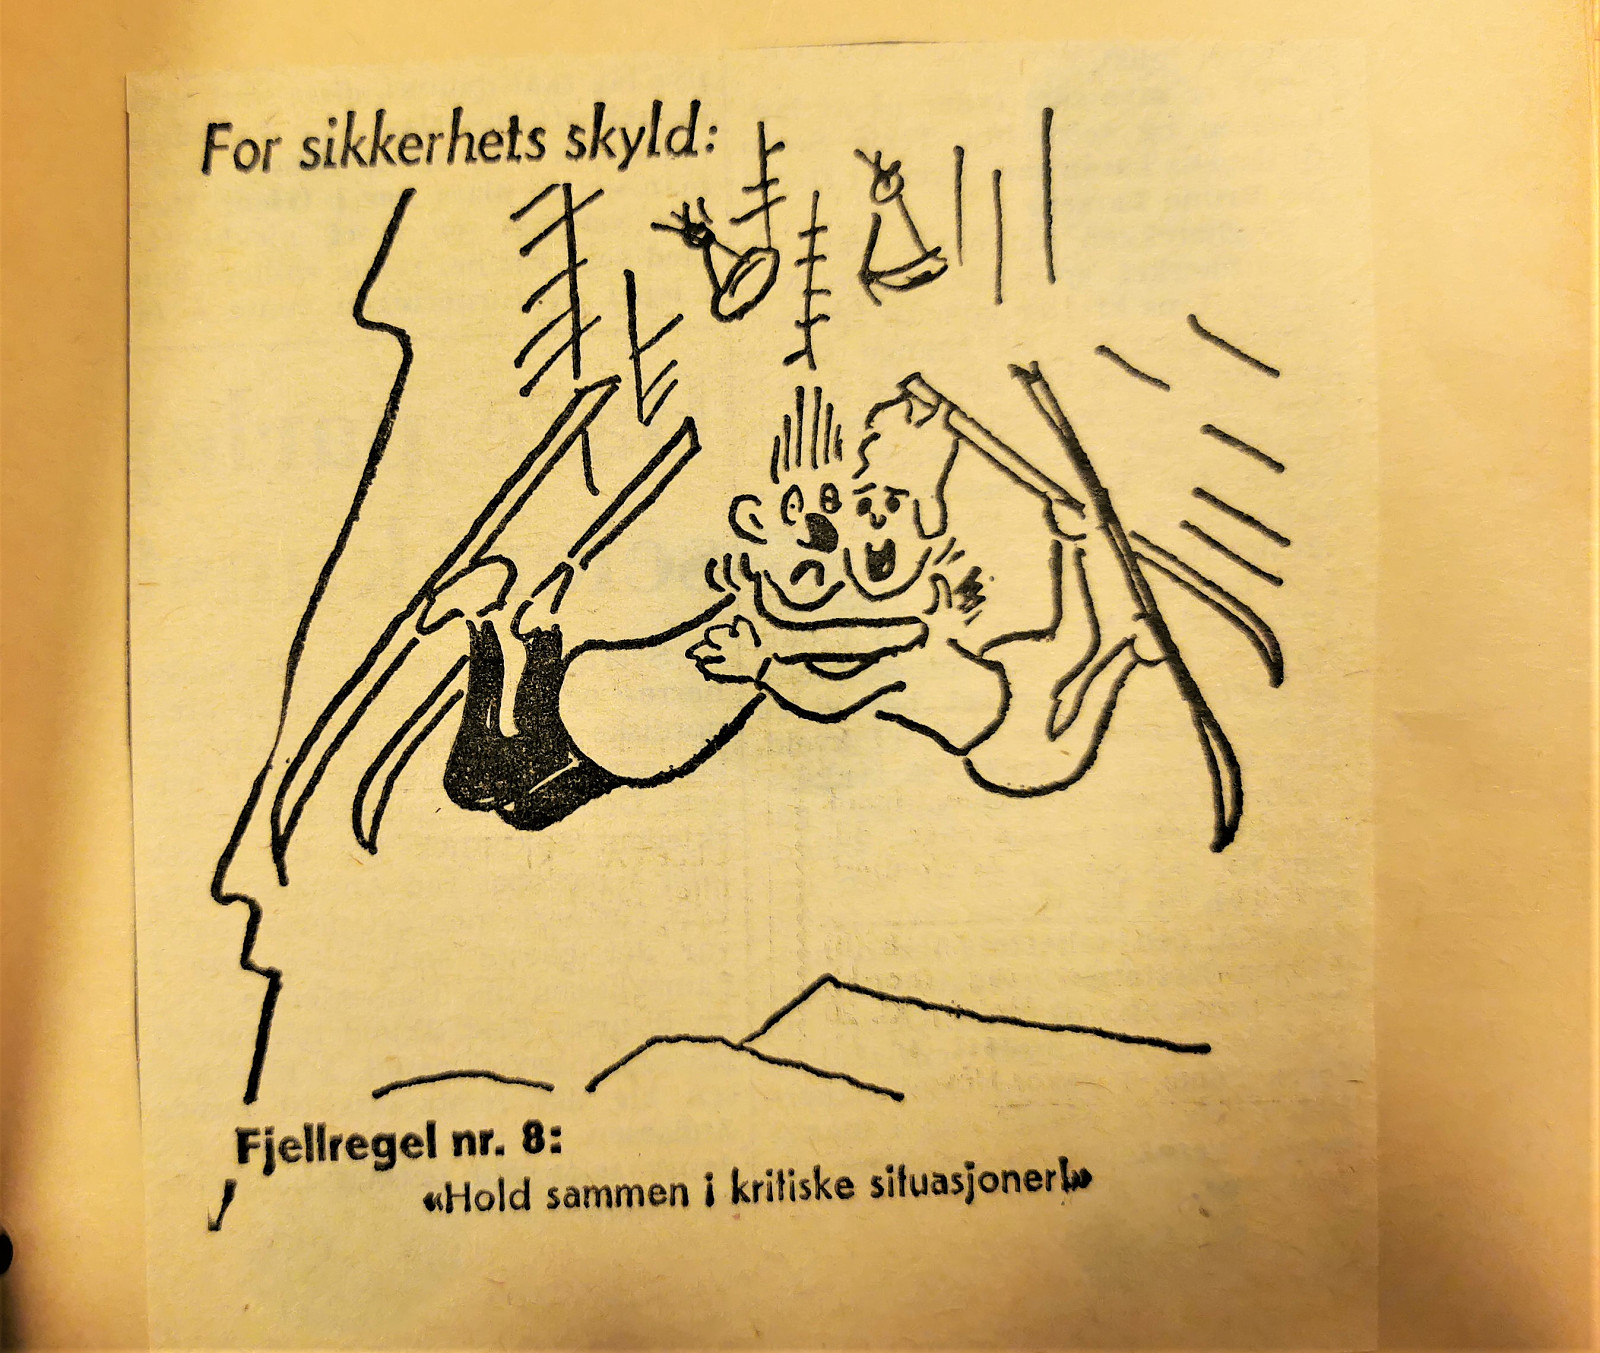 For sikkerhets skyld:
Fjellregel nr. 8:
«Hold sammen i kritiske situasjoner!»